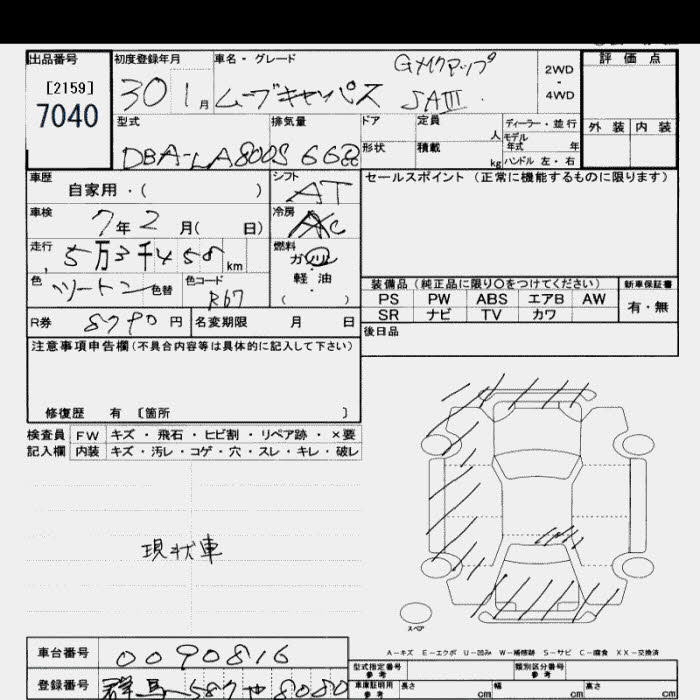 出品番号 初度登録年月 車名・グレード Gメイクアップ 2WD 評価点
[2159] 30 1月 ムーブキャンバス SAⅢ . - 4WD
7040
型式 排気量 ドア 定員 人 ディーラー・並行 外装 内装
モデル年式 年
DBA-LA800S 660 形状 積載 kg ハンドル 左・右
車歴 自家用・( ) シフト AT セールスポイント(正常に機能するものに限ります)
車検 7年2月( 日) 冷房 A/C
走行 5万3千458km 燃料 ガソリン
軽油
( )
色 ツートン 色替 色コード R67 装備品(純正品に限り○をつけてください) 新車保証書
PS PW ABS エアB AW 有・無
SR ナビ TV カワ
R券 8790円 名変期限 月 日 後日品
注意事項申告欄(不具合内容等は具体的に記入して下さい)
修復歴 有 〔箇所 〕
検査員 FW キズ・飛石・ヒビ割・リペア跡・×要
記入欄 内装 キズ・汚レ・コゲ・穴・スレ・キレ・破レ
現状車
スペア
A-キズ E-エクボ U-凹み W-補修跡 S-サビ C-腐食 XX-交換済
車台番号 0090816 型式指定番号 参考 類別区分番号 参考
登録番号 群馬 587 8080 車庫証明用 参考 長さ cm 幅 cm 高さ cm